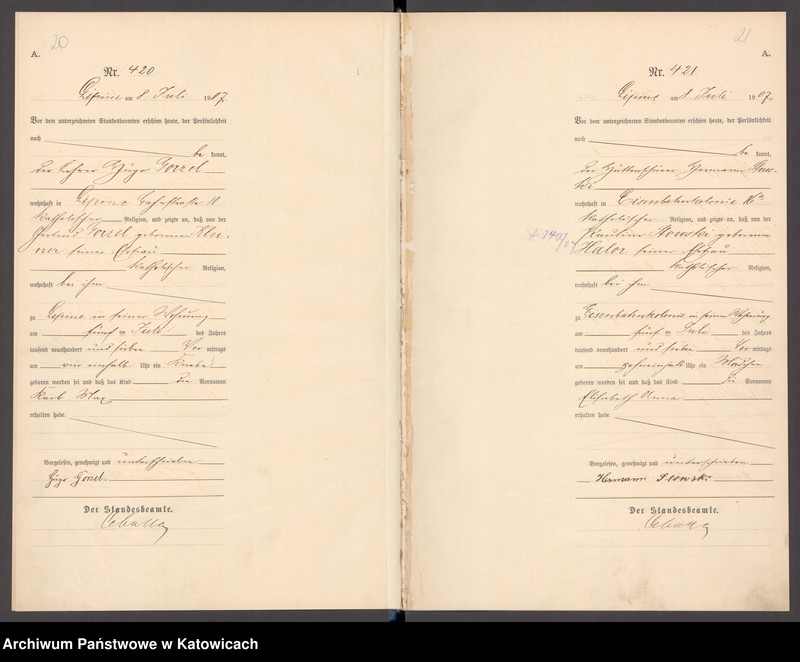 20
A.
Nr. 420
Lipine am 8. Juli 1907.
Vor dem unterzeichneten Standesbeamten erschien heute, der Persönlichkeit
nach
be kannt,
der Lehrer Hugo Gorzel
wohnhaft in Lipine
katholischer Religion, und zeigte an, daß von der
Gorzel geborenen Klei-
ner seiner Ehefrau
katholischer Religion,
wohnhaft bei ihm
zu Lipine in seiner Wohnung
am fünften Juli des Jahres
tausend neunhundert und sieben Vor mittags
um ein einhalb Uhr ein Knabe
geboren worden sei und daß das Kind die Vornamen
Karl Max
erhalten habe.
Vorgelesen, genehmigt und unterschrieben
Hugo Gorzel.
Der Standesbeamte.
21
A.
Nr. 421
Lipine am 8. Juli 1907.
Vor dem unterzeichneten Standesbeamten erschien heute, der Persönlichkeit
nach
be kannt,
der Hermann
wohnhaft in Eisenbahnkolonie
katholischer Religion, und zeigte an, daß von der
Pauline geborenen
seiner Ehefrau
katholischer Religion,
wohnhaft bei ihm
zu Eisenbahnkolonie in seiner Wohnung
am fünften Juli des Jahres
tausend neunhundert und sieben Vor mittags
um Uhr ein Mädchen
geboren worden sei und daß das Kind die Vornamen
Elisabeth Anna
erhalten habe.
Vorgelesen, genehmigt und unterschrieben
Hermann
Der Standesbeamte.
Archiwum Państwowe w Katowicach